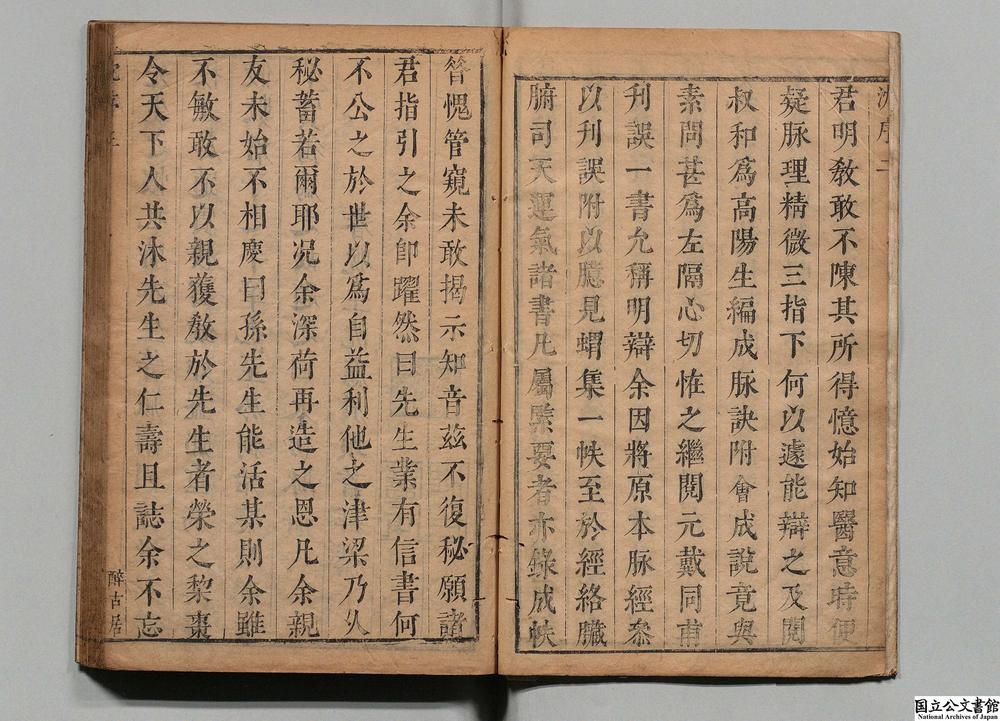 沈序 二
君明教敢不陳其所得憶始知醫意時便
疑脉理精微三指下何以遽能辯之及閱
叔和爲高陽生編成脉訣附會成說竟與
素問甚爲左隔心切恠之繼閱元戴同甫
刊誤一書允稱明辯余因將原本脉經叅
以刊誤附以臆見蝟集一帙至於經絡臟
腑司天運氣諸書凡屬緊要者亦錄成帙
管窺未敢揭示知音茲不復秘願諸
君指引之余卽躍然曰先生業有信書何
不公之於世以爲自益利他之津梁乃乆
秘蓄若爾耶况余深荷再造之恩凡余親
友未始不相慶曰孫先生能活某則余雖
不敏敢不以親獲教於先生者榮之棃棗
令天下人共沐先生之仁壽且誌余不忘
醉古居
国立公文書館
National Archives of Japan